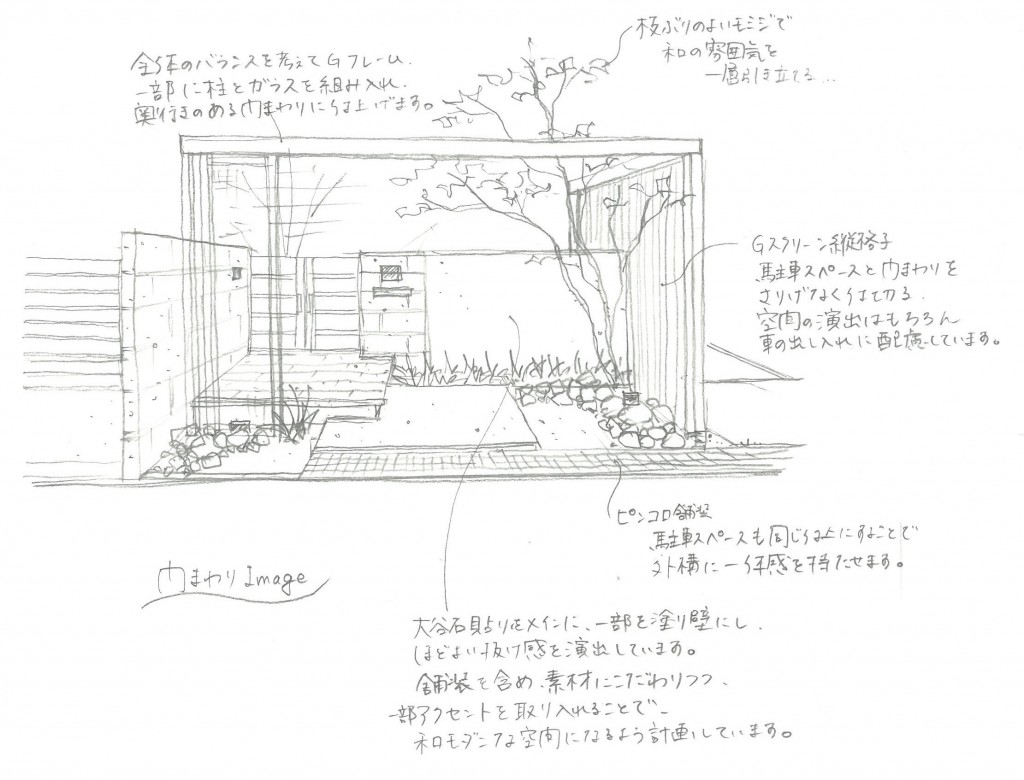 全体のバランスを考えてGフレーム
一部に柱とガラスを組み入れ、
奥行きのある門まわりに仕上げます。
枝ぶりのよいモミジで
和の雰囲気を
一層引き立てる...
Gスクリーン縦格子
駐車スペースと門まわりを
さりげなく仕切る。
空間の演出はもちろん
車の出し入れに配慮しています。
ピンコロ舗装
駐車スペースも同じ仕上にすることで
外構に一体感を持たせます。
門まわりImage
大谷石貼りをメインに、一部を塗り壁にし、
ほどよい抜け感を演出しています。
舗装を含め、素材にこだわりつつ、
一部アクセントを取り入れることで、
和モダンな空間になるよう計画しています。